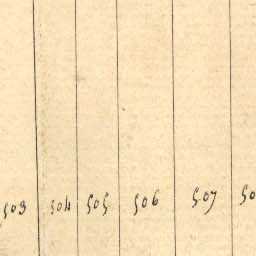 503 504 505 506 507 50